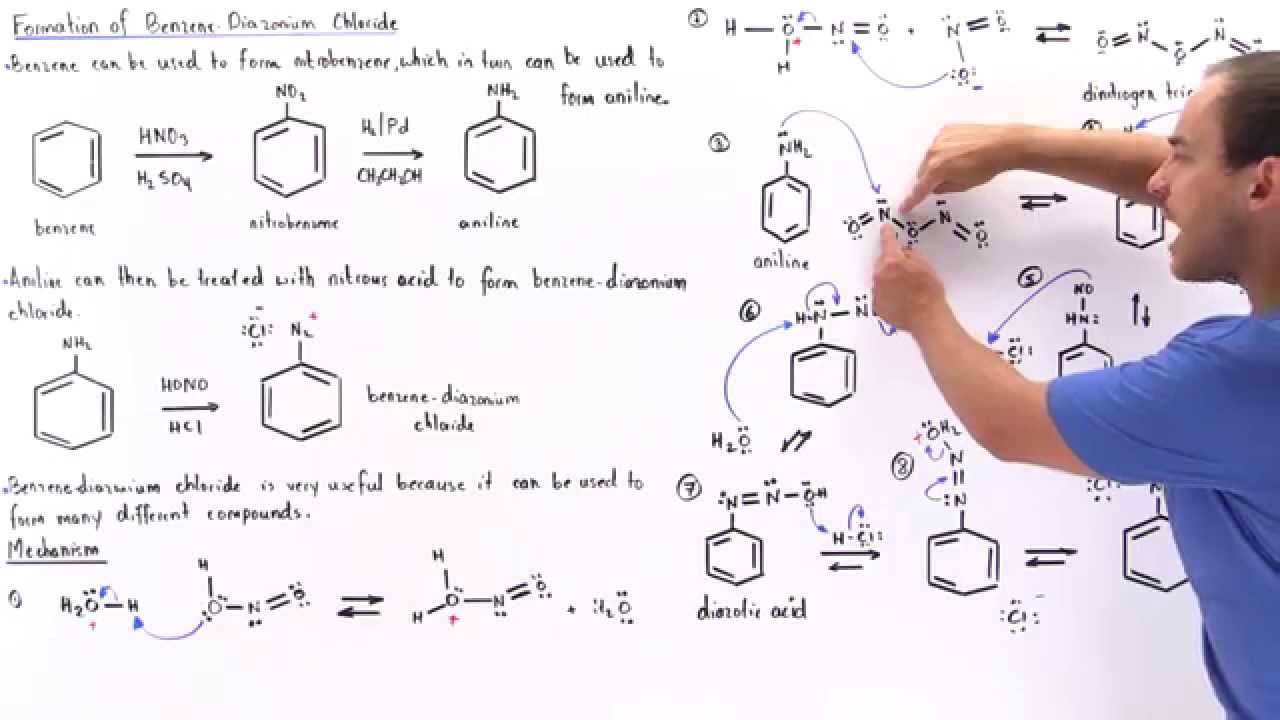 Formation of Benzene-Diazonium Chloride
• Benzene can be used to form nitrobenzene, which in turn can be used to
form aniline.
HNO3
H2SO4
NO2
H2/Pd
CH3CH2OH
NH2
benzene
nitrobenzene
aniline
• Aniline can then be treated with nitrous acid to form benzene-diazonium
chloride.
NH2
HONO
HCl
:Cl: −
N2 +
benzene-diazonium
chloride
• Benzene-diazonium chloride is very useful because it can be used to
form many different compounds.
Mechanism
① H2O — H +
H O — N = O
⇌
H H O — N = O +
+ H2O
② H — O — N = O
H +
+ N = O
O −
⇌
O = N O N = O
dinitrogen
③ NH2
O = N O N = O
⇌
aniline
⑤ NO
HN:
Cl:
⑥ H-N — N
H2O
⑦ :N = N — OH
H — Cl:
⇌
diazolic acid
⑧ + OH2
N
:N
⇌
:Cl: −
:Cl:
N